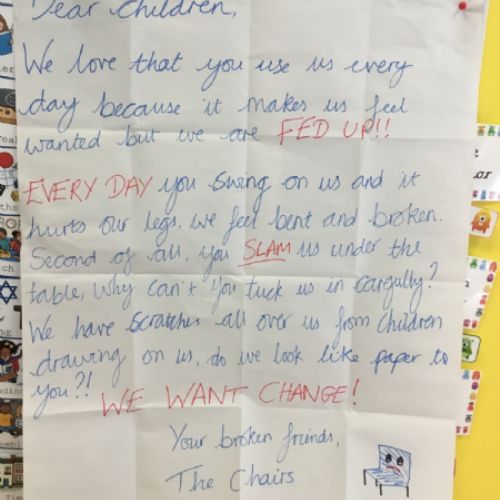 Dear Children,
We love that you use us every
day because it makes us feel
wanted but we are FED UP!!
EVERY DAY you swing on us and it
hurts our legs, we feel bent and broken.
Second of all, you SLAM us under the
table, Why can't you tuck us in carefully?
We have scratches all over us from children
drawing on us, do we look like paper to
you?!
WE WANT CHANGE!
Your broken friends,
The Chairs